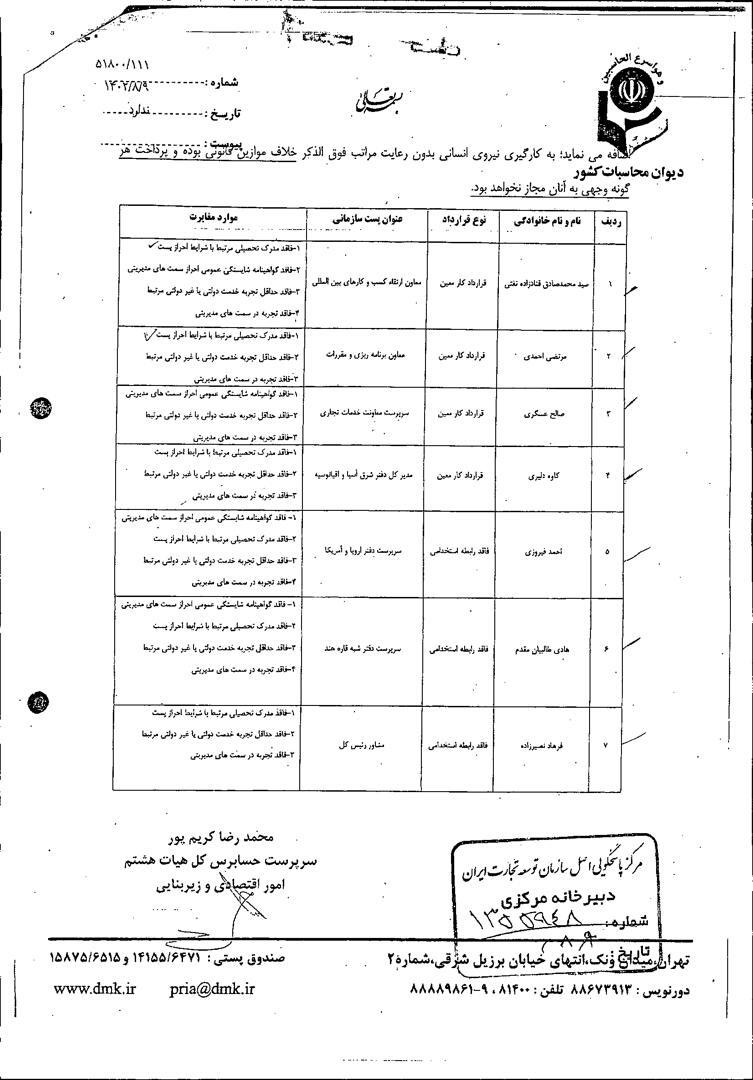 و هو اسرع الحاسبین
۵۱۸۰۰/۱۱۱
شماره :
۱۴۰۲/۸/۹
تاریخ :
ندارد
پیوست :
بسمه تعالی
دیوان محاسبات کشور
اضافه می نماید؛ به کارگیری نیروی انسانی بدون رعایت مراتب فوق الذکر خلاف موازین قانونی بوده و پرداخت هر
گونه وجهی به آنان مجاز نخواهد بود.
ردیف نام و نام خانوادگی نوع قرارداد عنوان پست سازمانی موارد مغایرت
۱ سید محمدصادق قنادزاده نفتی قرارداد کار معین معاون ارتقاء کسب و کارهای بین المللی
۱-فاقد مدرک تحصیلی مرتبط با شرایط احراز پست
۲-فاقد گواهینامه شایستگی عمومی احراز سمت های مدیریتی
۳-فاقد حداقل تجربه خدمت دولتی یا غیر دولتی مرتبط
۴-فاقد تجربه در سمت های مدیریتی
۲ مرتضی احمدی قرارداد کار معین معاون برنامه ریزی و مقررات
۱-فاقد مدرک تحصیلی مرتبط با شرایط احراز پست
۲-فاقد حداقل تجربه خدمت دولتی یا غیر دولتی مرتبط
۳-فاقد تجربه در سمت های مدیریتی
۳ صالح عسگری قرارداد کار معین سرپرست معاونت خدمات تجاری
۱-فاقد گواهینامه شایستگی عمومی احراز سمت های مدیریتی
۲-فاقد حداقل تجربه خدمت دولتی یا غیر دولتی مرتبط
۳-فاقد تجربه در سمت های مدیریتی
۴ کاوه دلیری قرارداد کار معین مدیر کل دفتر شرق آسیا و اقیانوسیه
۱-فاقد مدرک تحصیلی مرتبط با شرایط احراز پست
۲-فاقد حداقل تجربه خدمت دولتی یا غیر دولتی مرتبط
۳-فاقد تجربه در سمت های مدیریتی
۵ احمد فیروزی فاقد رابطه استخدامی سرپرست دفتر اروپا و آمریکا
۱- فاقد گواهینامه شایستگی عمومی احراز سمت های مدیریتی
۲-فاقد مدرک تحصیلی مرتبط با شرایط احراز پست
۳-فاقد حداقل تجربه خدمت دولتی یا غیر دولتی مرتبط
۴-فاقد تجربه در سمت های مدیریتی
۶ هادی طالبیان مقدم فاقد رابطه استخدامی سرپرست دفتر شبه قاره هند
۱- فاقد گواهینامه شایستگی عمومی احراز سمت های مدیریتی
۲-فاقد مدرک تحصیلی مرتبط با شرایط احراز پست
۳-فاقد حداقل تجربه خدمت دولتی یا غیر دولتی مرتبط
۴-فاقد تجربه در سمت های مدیریتی
۷ فرهاد نصیرزاده فاقد رابطه استخدامی مشاور رئیس کل
۱-فاقد مدرک تحصیلی مرتبط با شرایط احراز پست
۲-فاقد حداقل تجربه خدمت دولتی یا غیر دولتی مرتبط
۳-فاقد تجربه در سمت های مدیریتی
محمد رضا کریم پور
سرپرست حسابرس کل هیات هشتم
امور اقتصادی و زیربنایی
مرکز پاسخگوئی اصل سازمان توسعه تجارت ایران
دبیرخانه مرکزی
شماره: ۱۳۵۵۹۴۸
تاریخ
تهران،میدان ونک،انتهای خیابان برزیل شرقی،شماره۲ صندوق پستی : ۱۴۱۵۵/۶۴۷۱ و ۱۵۸۷۵/۶۵۱۵
دورنویس : ۸۸۶۷۳۹۱۳ تلفن : ۸۱۴۰۰ ، ۹-۸۸۸۸۹۸۶۱ pria@dmk.ir www.dmk.ir